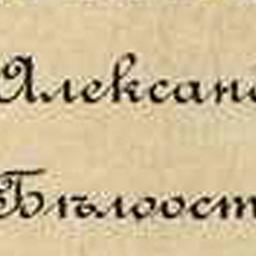 Алексан
Бѣлоост